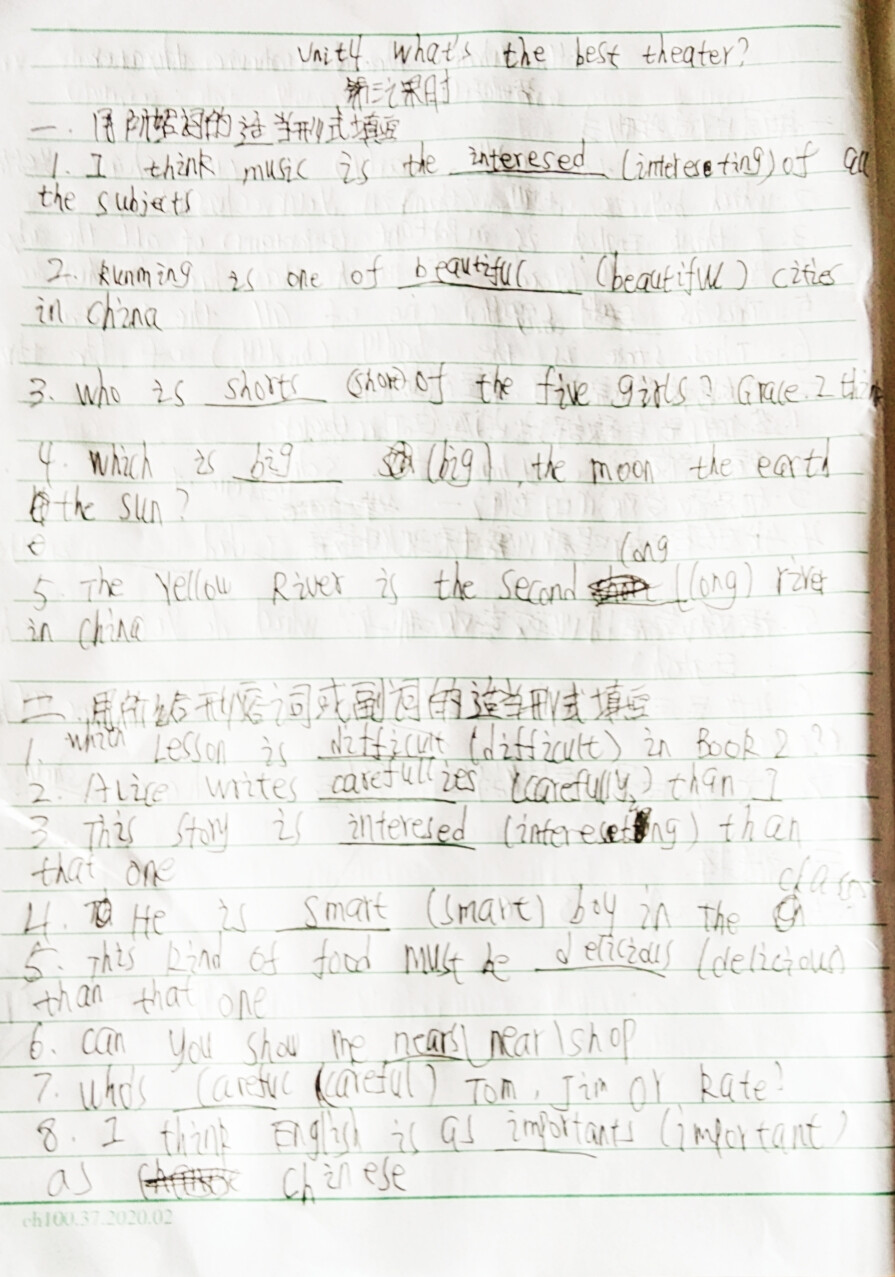 Unit4 What's the best theater?
第三课时
一. 用所给词的适当形式填空
1. I think music is the interesed (intereseting) of all
the subjects
2. Kunming is one of beautiful (beautiful) cities
in China
3. Who is shorts (short) of the five girls? Grace. I think
4. Which is big (big), the moon the earth
the sun?
long
5. The Yellow River is the second (long) river
in China
二. 用所给形容词或副词的适当形式填空
1. which Lesson is difficult (difficult) in Book 2?
2. Alice writes carefullies (carefully) than I
3 This story is interesed (intereseting) than
that one
class
4. He is smart (smart) boy in the
5. This kind of food must be delicious (delicious)
than that one
6. can you show me nears near shop
7. Who's careful (careful) Tom, Jim or Kate?
8. I think English is as importants (important)
as Chinese
ch100.37.2020.02